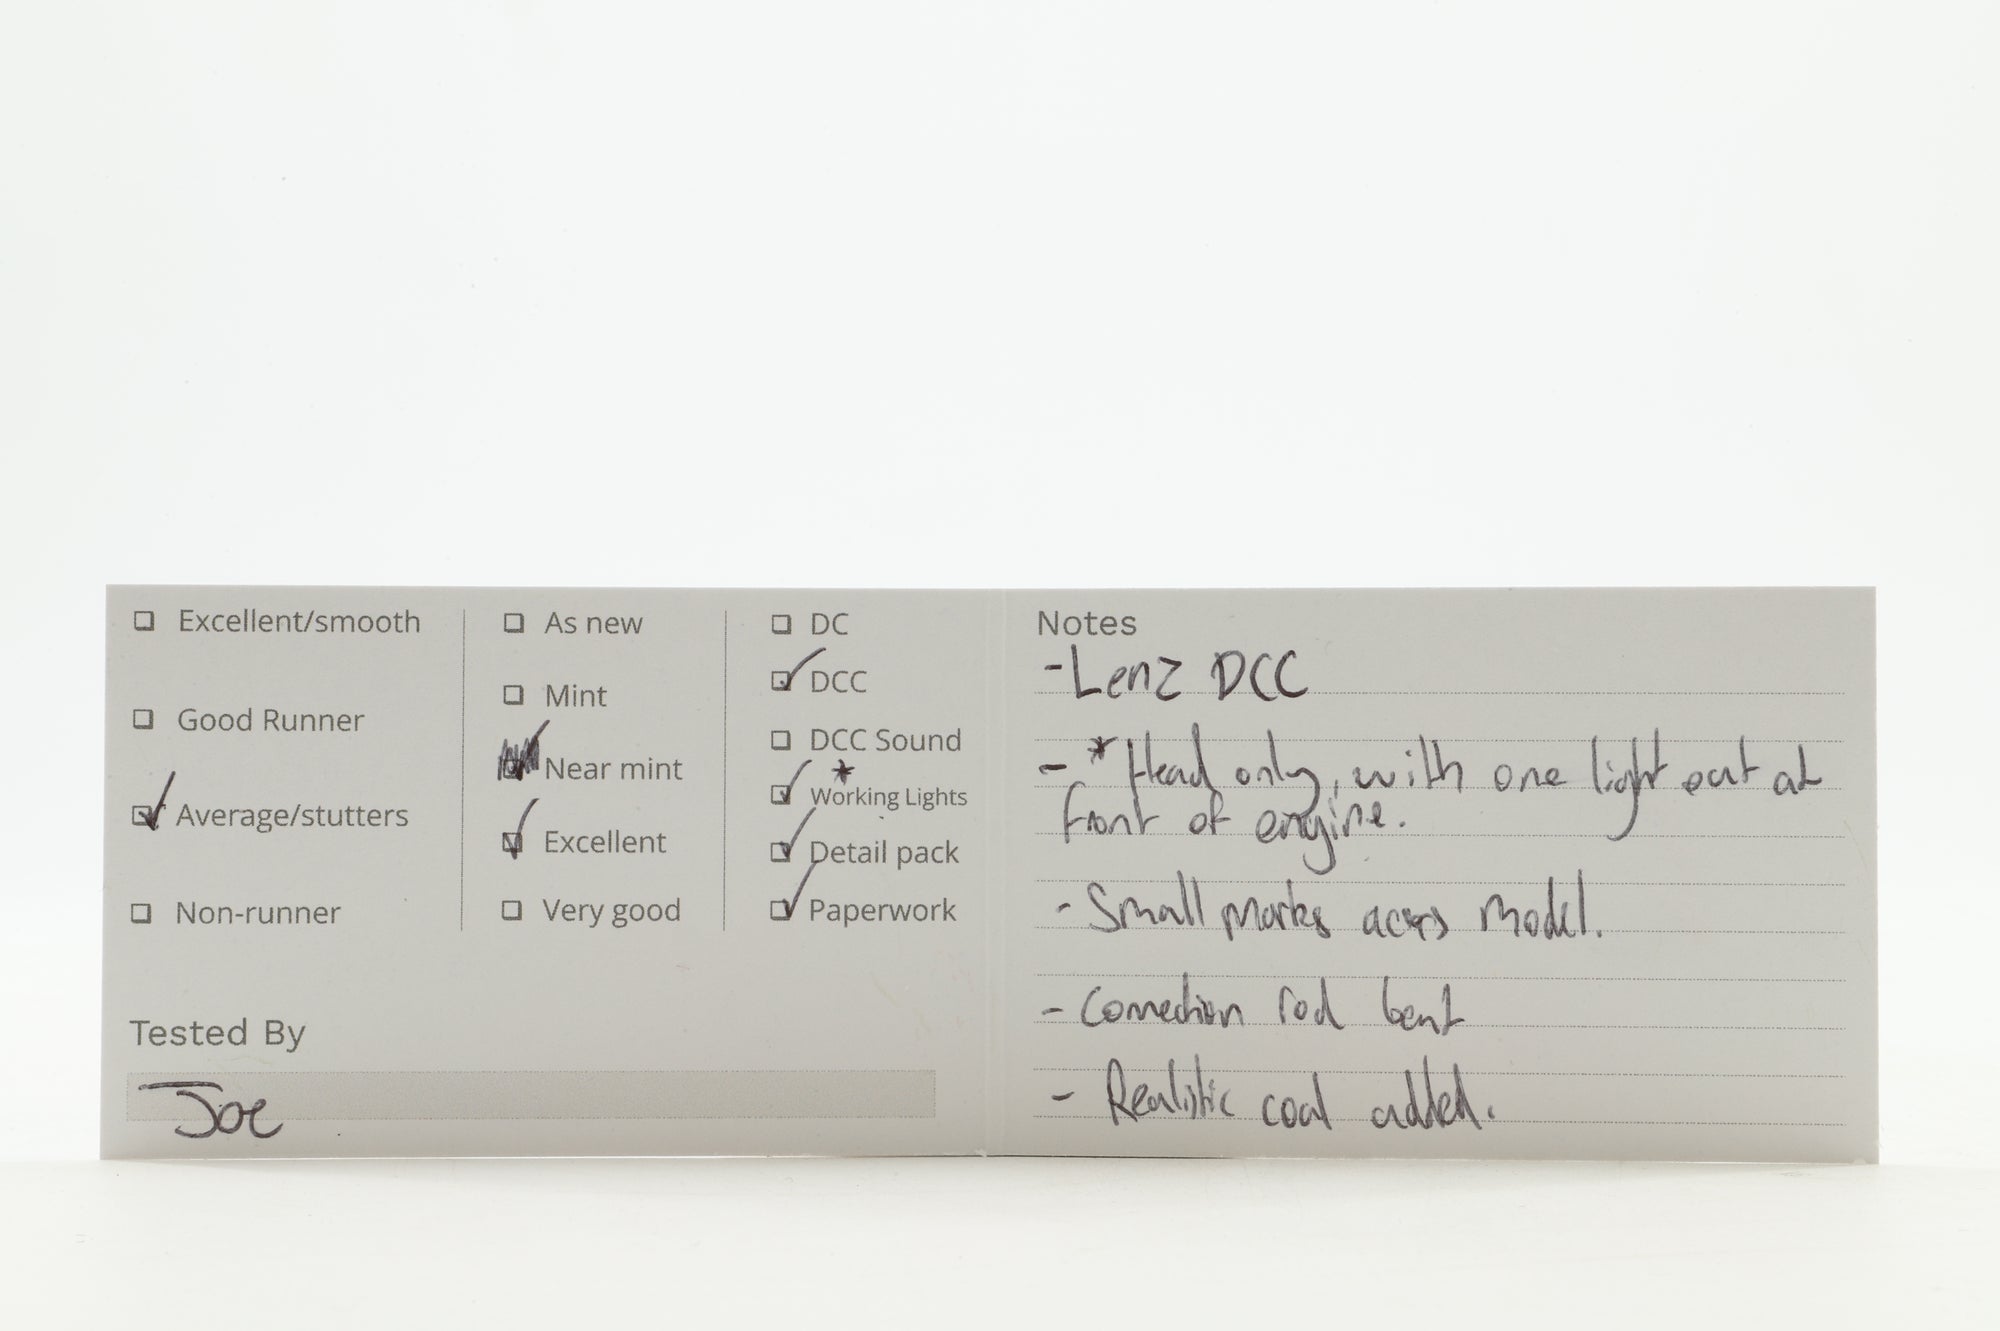 Excellent/smooth
Good Runner
Average/stutters
Non-runner
As new
Mint
Near mint
Excellent
Very good
DC
DCC
DCC Sound
*
Working Lights
Detail pack
Paperwork
Tested By
Joe
Notes
- Lenz DCC
- * Head only, with one light out at
front of engine.
- Small marks across model.
- Connection rod bent
- Realistic coal added.